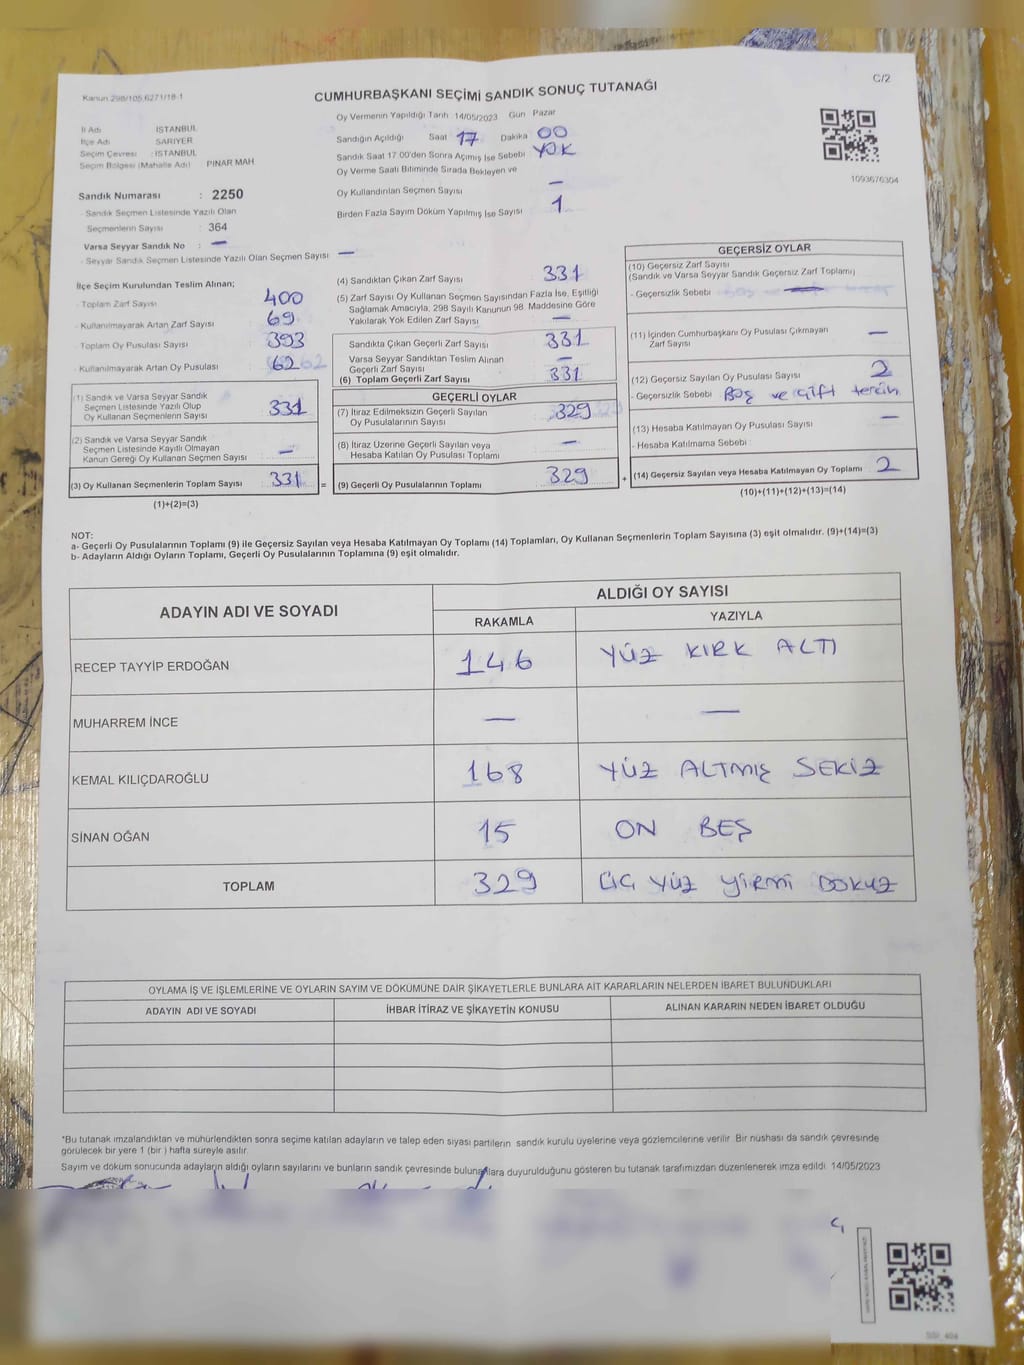 C/2
Kanun 298/105 6271/18-1
CUMHURBAŞKANI SEÇİMİ SANDIK SONUÇ TUTANAĞI
İl Adı İSTANBUL
İlçe Adı SARIYER
Seçim Çevresi : İSTANBUL
Seçim Bölgesi (Mahalle Adı) PINAR MAH
Sandık Numarası : 2250
- Sandık Seçmen Listesinde Yazılı Olan
Seçmenlerin Sayısı : 364
Varsa Seyyar Sandık No : —
- Seyyar Sandık Seçmen Listesinde Yazılı Olan Seçmen Sayısı —
Oy Vermenin Yapıldığı Tarih 14/05/2023 Gün Pazar
Sandığın Açıldığı Saat 17 Dakika 00
Sandık Saat 17 00'den Sonra Açımış İse Sebebi YOK
Oy Verme Saati Bitiminde Sırada Bekleyen ve
Oy Kullandırılan Seçmen Sayısı —
Birden Fazla Sayım Döküm Yapılmış İse Sayısı 1
1093676304
İlçe Seçim Kurulundan Teslim Alınan;
- Toplam Zarf Sayısı 400
- Kullanılmayarak Artan Zarf Sayısı 69
- Toplam Oy Pusulası Sayısı 393
- Kullanılmayarak Artan Oy Pusulası 62
(1) Sandık ve Varsa Seyyar Sandık
Seçmen Listesinde Yazılı Olup
Oy Kullanan Seçmenlerin Sayısı 331
(2) Sandık ve Varsa Seyyar Sandık
Seçmen Listesinde Kayıtlı Olmayan
Kanun Gereği Oy Kullanan Seçmen Sayısı —
(3) Oy Kullanan Seçmenlerin Toplam Sayısı 331 =
(1)+(2)=(3)
(4) Sandıktan Çıkan Zarf Sayısı 331
(5) Zarf Sayısı Oy Kullanan Seçmen Sayısından Fazla İse, Eşitliği
Sağlamak Amacıyla, 298 Sayılı Kanunun 98. Maddesine Göre
Yakılarak Yok Edilen Zarf Sayısı —
Sandıkta Çıkan Geçerli Zarf Sayısı 331
Varsa Seyyar Sandıktan Teslim Alınan
Geçerli Zarf Sayısı —
(6) Toplam Geçerli Zarf Sayısı 331
GEÇERLİ OYLAR
(7) İtiraz Edilmeksizin Geçerli Sayılan
Oy Pusulalarının Sayısı 329
(8) İtiraz Üzerine Geçerli Sayılan veya
Hesaba Katılan Oy Pusulası Toplamı —
(9) Geçerli Oy Pusulalarının Toplamı 329 +
GEÇERSİZ OYLAR
(10) Geçersiz Zarf Sayısı
(Sandık ve Varsa Seyyar Sandık Geçersiz Zarf Toplamı)
- Geçersizlik Sebebi
(11) İçinden Cumhurbaşkanı Oy Pusulası Çıkmayan
Zarf Sayısı —
(12) Geçersiz Sayılan Oy Pusulası Sayısı 2
- Geçersizlik Sebebi Boş ve çift tercih
(13) Hesaba Katılmayan Oy Pusulası Sayısı —
- Hesaba Katılmama Sebebi
(14) Geçersiz Sayılan veya Hesaba Katılmayan Oy Toplamı 2
(10)+(11)+(12)+(13)=(14)
NOT:
a- Geçerli Oy Pusulalarının Toplamı (9) ile Geçersiz Sayılan veya Hesaba Katılmayan Oy Toplamı (14) Toplamları, Oy Kullanan Seçmenlerin Toplam Sayısına (3) eşit olmalıdır. (9)+(14)=(3)
b- Adayların Aldığı Oyların Toplamı, Geçerli Oy Pusulalarının Toplamına (9) eşit olmalıdır.
ADAYIN ADI VE SOYADI
ALDIĞI OY SAYISI
RAKAMLA YAZIYLA
RECEP TAYYİP ERDOĞAN 146 YÜZ KIRK ALTI
MUHARREM İNCE — —
KEMAL KILIÇDAROĞLU 168 YÜZ ALTMIŞ SEKİZ
SİNAN OĞAN 15 ON BEŞ
TOPLAM 329 ÜÇ YÜZ YİRMİ DOKUZ
OYLAMA İŞ VE İŞLEMLERİNE VE OYLARIN SAYIM VE DÖKÜMÜNE DAİR ŞİKAYETLERLE BUNLARA AİT KARARLARIN NELERDEN İBARET BULUNDUKLARI
ADAYIN ADI VE SOYADI İHBAR İTİRAZ VE ŞİKAYETİN KONUSU ALINAN KARARIN NEDEN İBARET OLDUĞU
*Bu tutanak imzalandıktan ve mühürlendikten sonra seçime katılan adayların ve talep eden siyasi partilerin sandık kurulu üyelerine veya gözlemcilerine verilir Bir nüshası da sandık çevresinde
görülecek bir yere 1 (bir ) hafta süreyle asılır.
Sayım ve döküm sonucunda adayların aldığı oyların sayılarını ve bunların sandık çevresinde bulunanlara duyurulduğunu gösteren bu tutanak tarafımızdan düzenlenerek imza edildi 14/05/2023